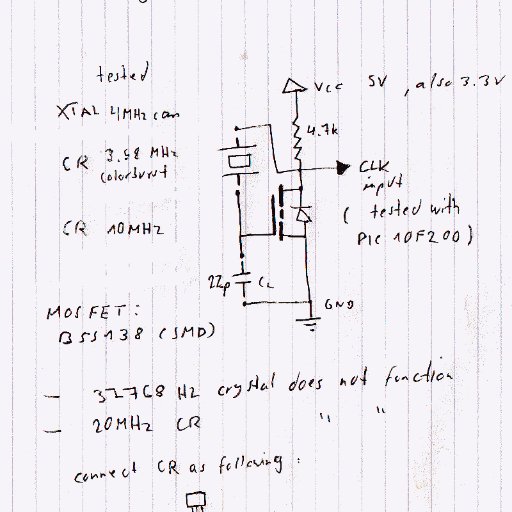 tested
XTAL 4MHz can
CR 3.58 MHz
colorburst
CR 10MHz
Vcc 5V , also 3.3V
4.7k
CLK
input
( tested with
PIC 10F200)
22p CL
GND
MOSFET:
BSS138 (SMD)
— 32768 Hz crystal does not function
— 20MHz CR " "
connect CR as following: